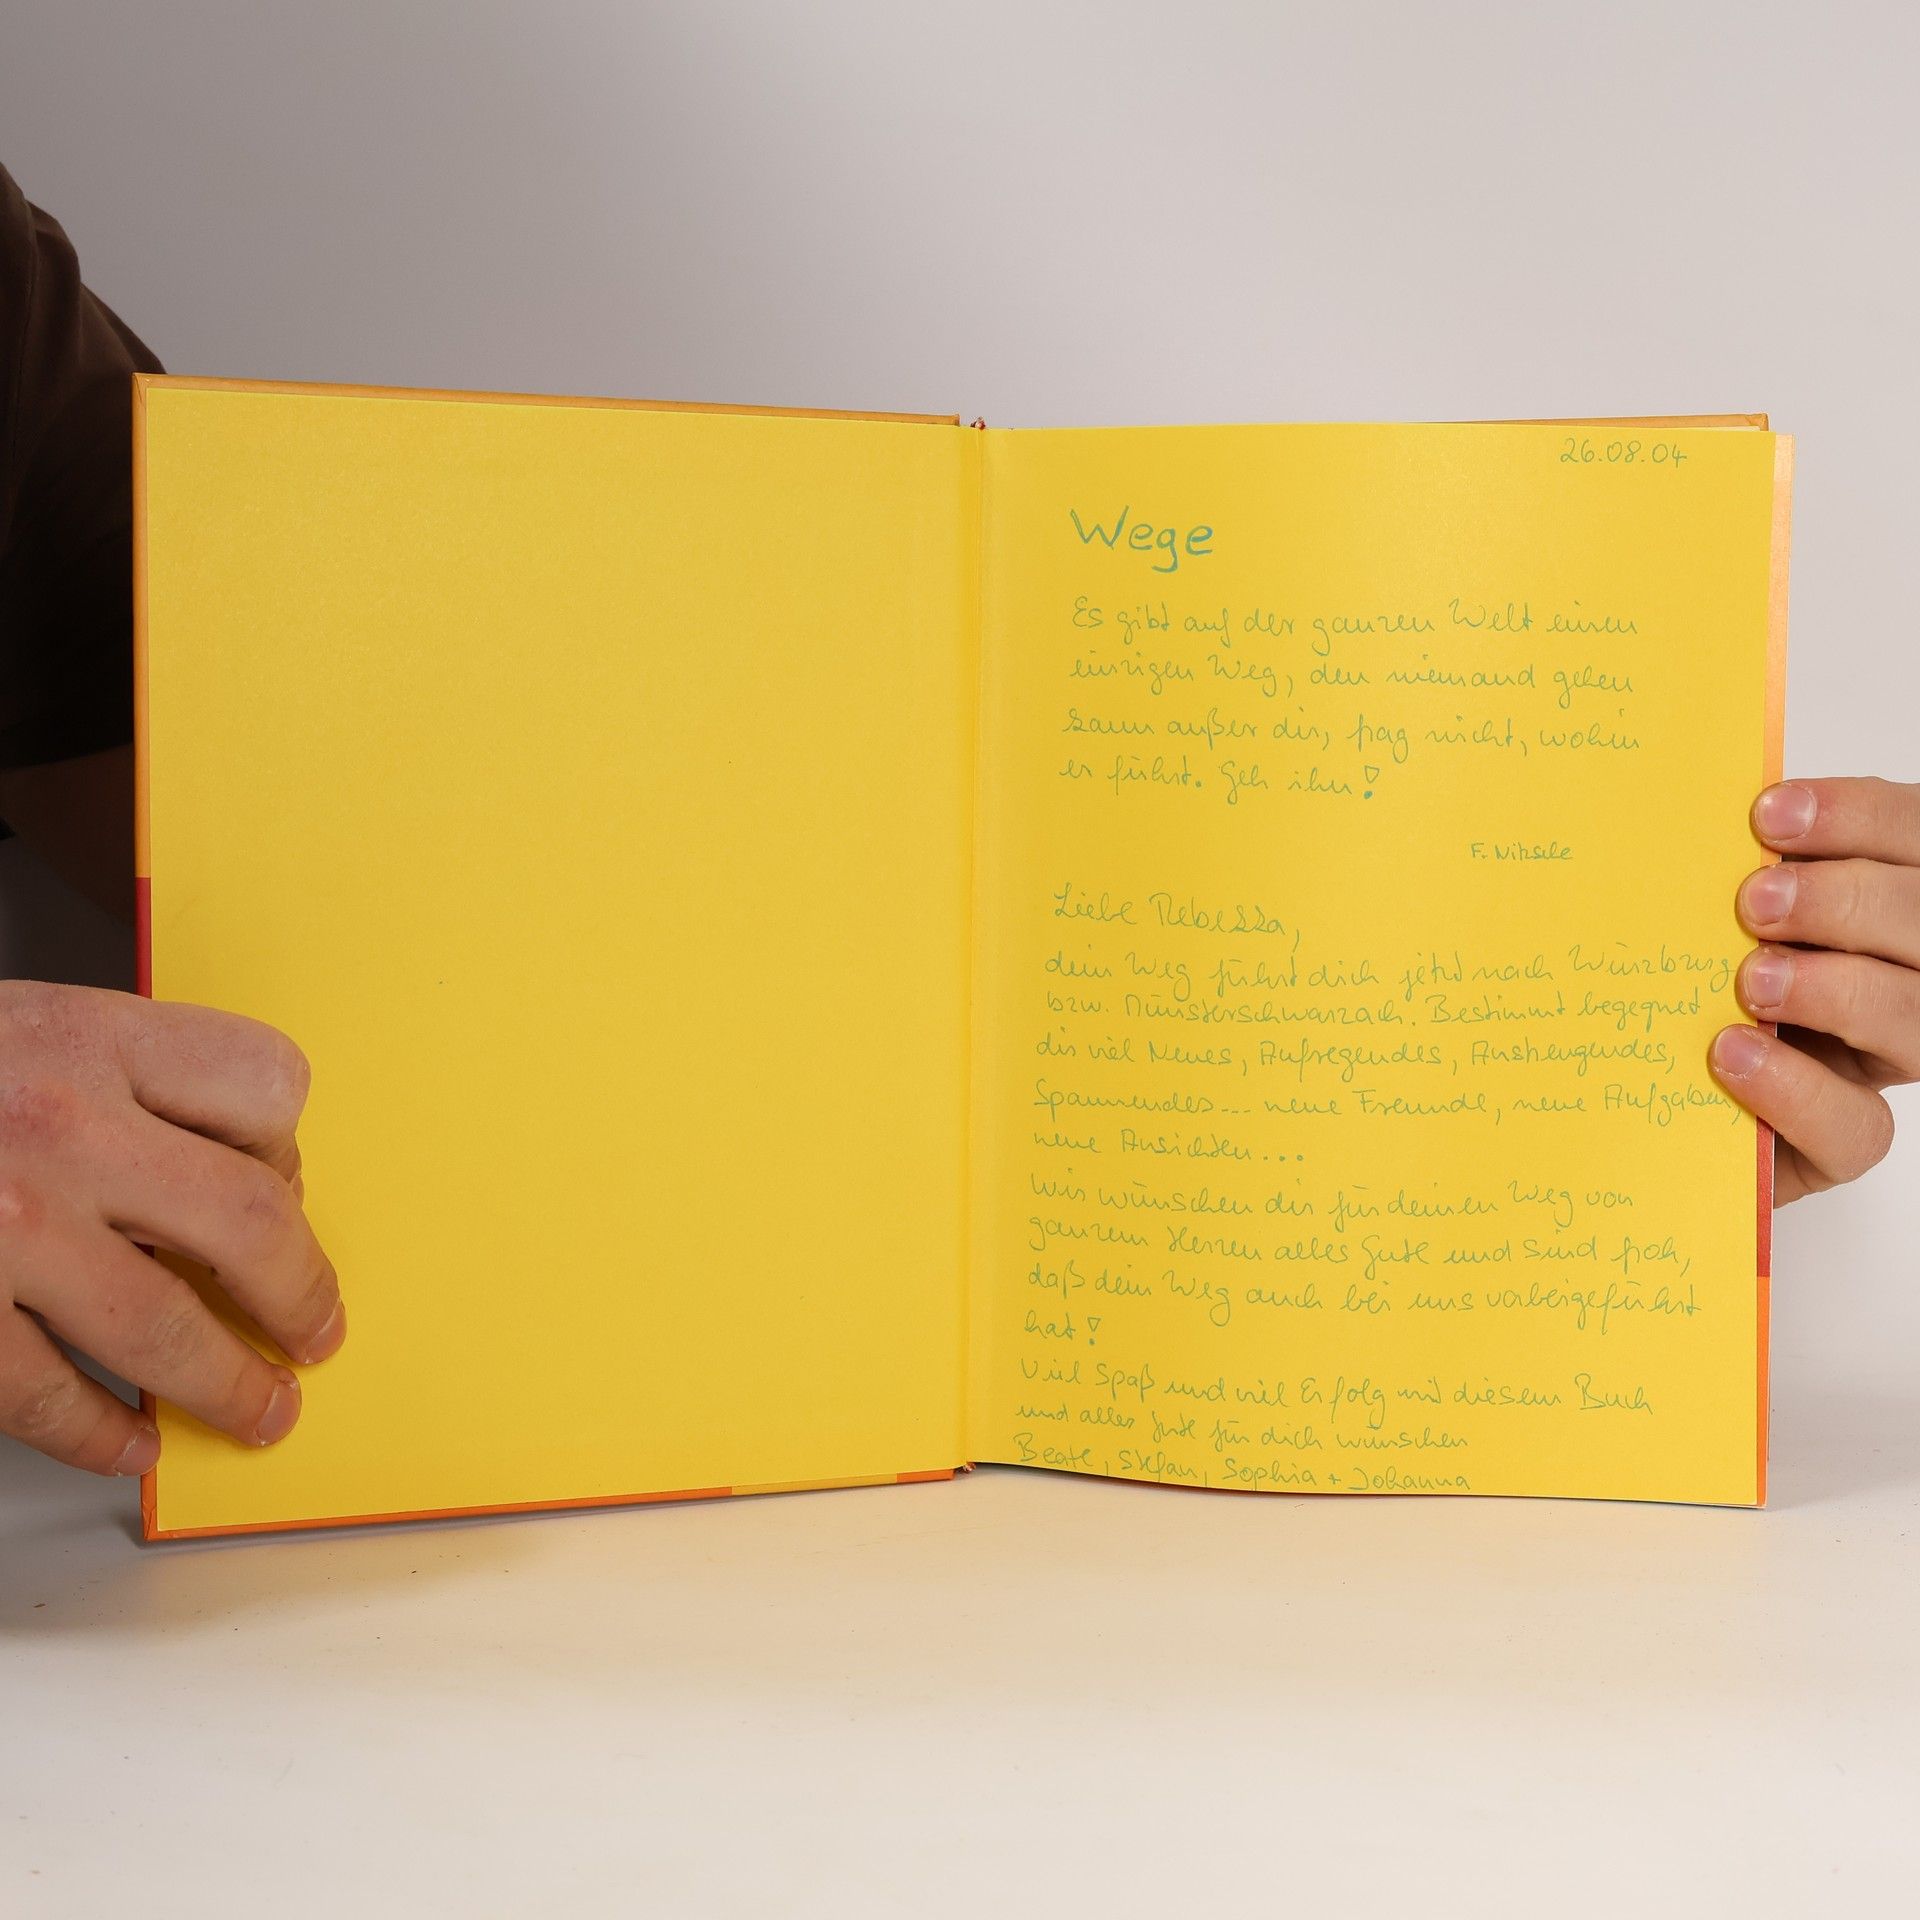 26.08.04
Wege
Es gibt auf der ganzen Welt einen
einzigen Weg, den niemand gehen
kann außer dir, frag nicht, wohin
er führt. Geh ihn!
F. Nitzsche
Liebe Rebekka,
dein Weg führt dich jetzt nach Würzburg
bzw. Münsterschwarzach. Bestimmt begegnet
dir viel Neues, Aufregendes, Anstrengendes,
Spannendes... neue Freunde, neue Aufgaben,
neue Ansichten...
Wir wünschen dir für deinen Weg von
ganzem Herzen alles Gute und sind froh,
daß dein Weg auch bei uns vorbeigeführt
hat!
Viel Spaß und viel Erfolg mit diesem Buch
und alles Gute für dich wünschen
Beate, Stefan, Sophia + Johanna